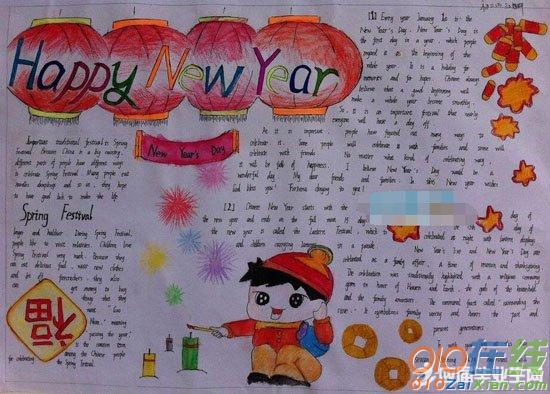 Happy New Year
New Year's Day
[1] Every year January 1s is the
New Year's Day. New Year's Day is
the first day in a year, which people
regard it as the beginning of the
whole year. It is a holiday for
memories and for hopes. Chinese always
believe what a good beginning will
make a whole year become smoothly.
So, it is an important festival that nearly
everyone will have a day off.
As it is important,
people have figured out many ways to
celebrate it. Some people will celebrate it with families and some will
celebrate with friends. No matter what kind of celebrating way,
it will be full of happiness. I believe New Year's Day would be a
wonderful day. My dear friends and families, In this New year wishes
God bless you! Fortune doying to you!
Important traditional festival is Spring
Festival. Because China is a big country,
different parts of people have different ways
to celebrate Spring Festival. Many people eat
noodles dumplings and so on, they hope
to have good luck to make the life
Spring Festival
longer and healthier. During Spring Festival,
people like to visit relatives. Children love
Spring Festival very much. Because they
can eat delicious food, wear new clothes
and set off firecrackers, they also
can get money to buy
things that they
want. Guo
Nian, meaning
"passing the year,"
is the common term
among the Chinese people
for celebrating the Spring Festival.
[2] Chinese New Year starts with the
the new year and ends on the full moon 15 days
the new year is called the Lantern Festival, which
celebrated at night with lantern displays
and children carrying lanterns in a parade.
New Year's Eve and New Year's Day are
celebrated as a family affair, a time of reunion and thanksgiving.
The celebration was traditionally highlighted with a religious ceremony
given in honor of Heaven and Earth, the gods of the household
and the family ancestors.
The communal feast called "surrounding the
stove". It symbolizes family unity and honors the past and
present generations.
福
910在线
910ZaiXian.com